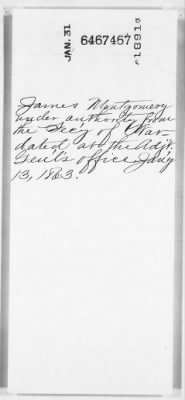 JAN. 31
6467467
James Montgomery
under authority from
the Sec'y of War-
dated at the Adjt.
Genl's office Jan'y
13, 1863.